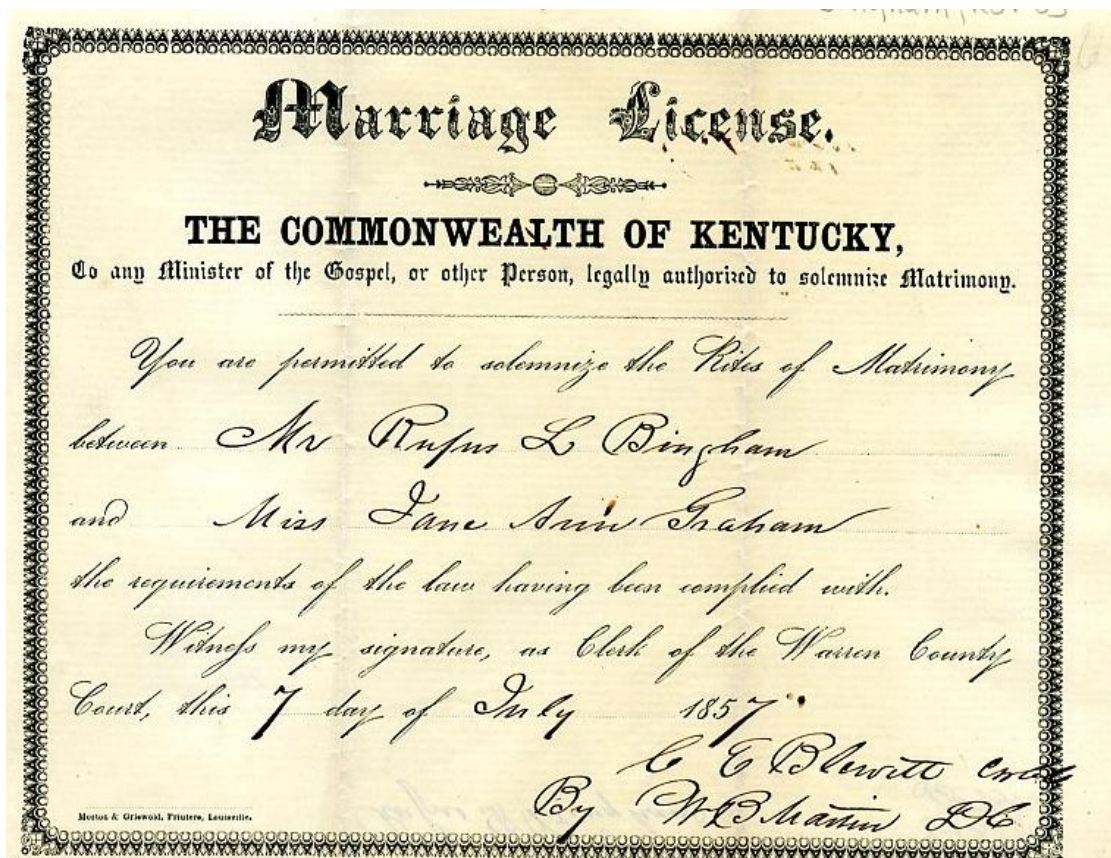 Marriage License.
THE COMMONWEALTH OF KENTUCKY,
To any Minister of the Gospel, or other Person, legally authorized to solemnize Matrimony.
You are permitted to solemnize the Rites of Matrimony
between Mr Rufus L Bingham
and Miss Jane Ann Graham
the requirements of the law having been complied with.
Witness my signature, as Clerk of the Warren County
Court, this 7 day of July 1857
C E Blewitt
By W B Martin DC
Morton & Griswold, Printers, Louisville.